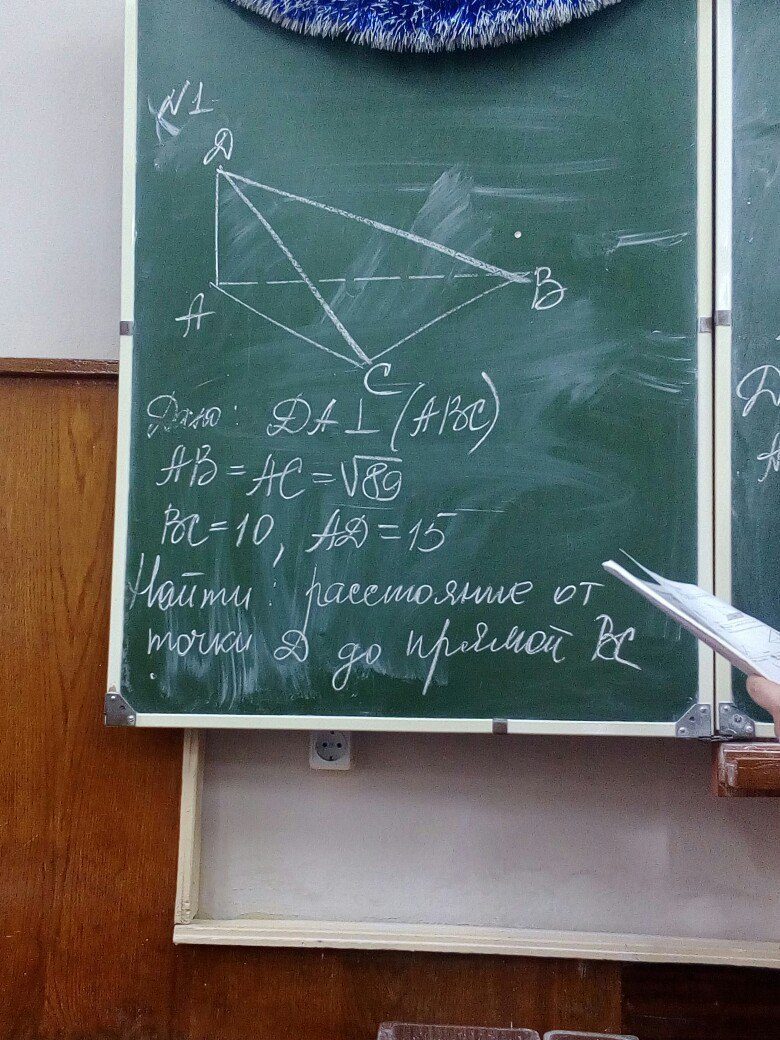 №1
D
A
B
C
Дано: DA ⊥ (ABC)
AB = AC = √89
BC = 10, AD = 15
Найти: расстояние от
точки D до прямой BC